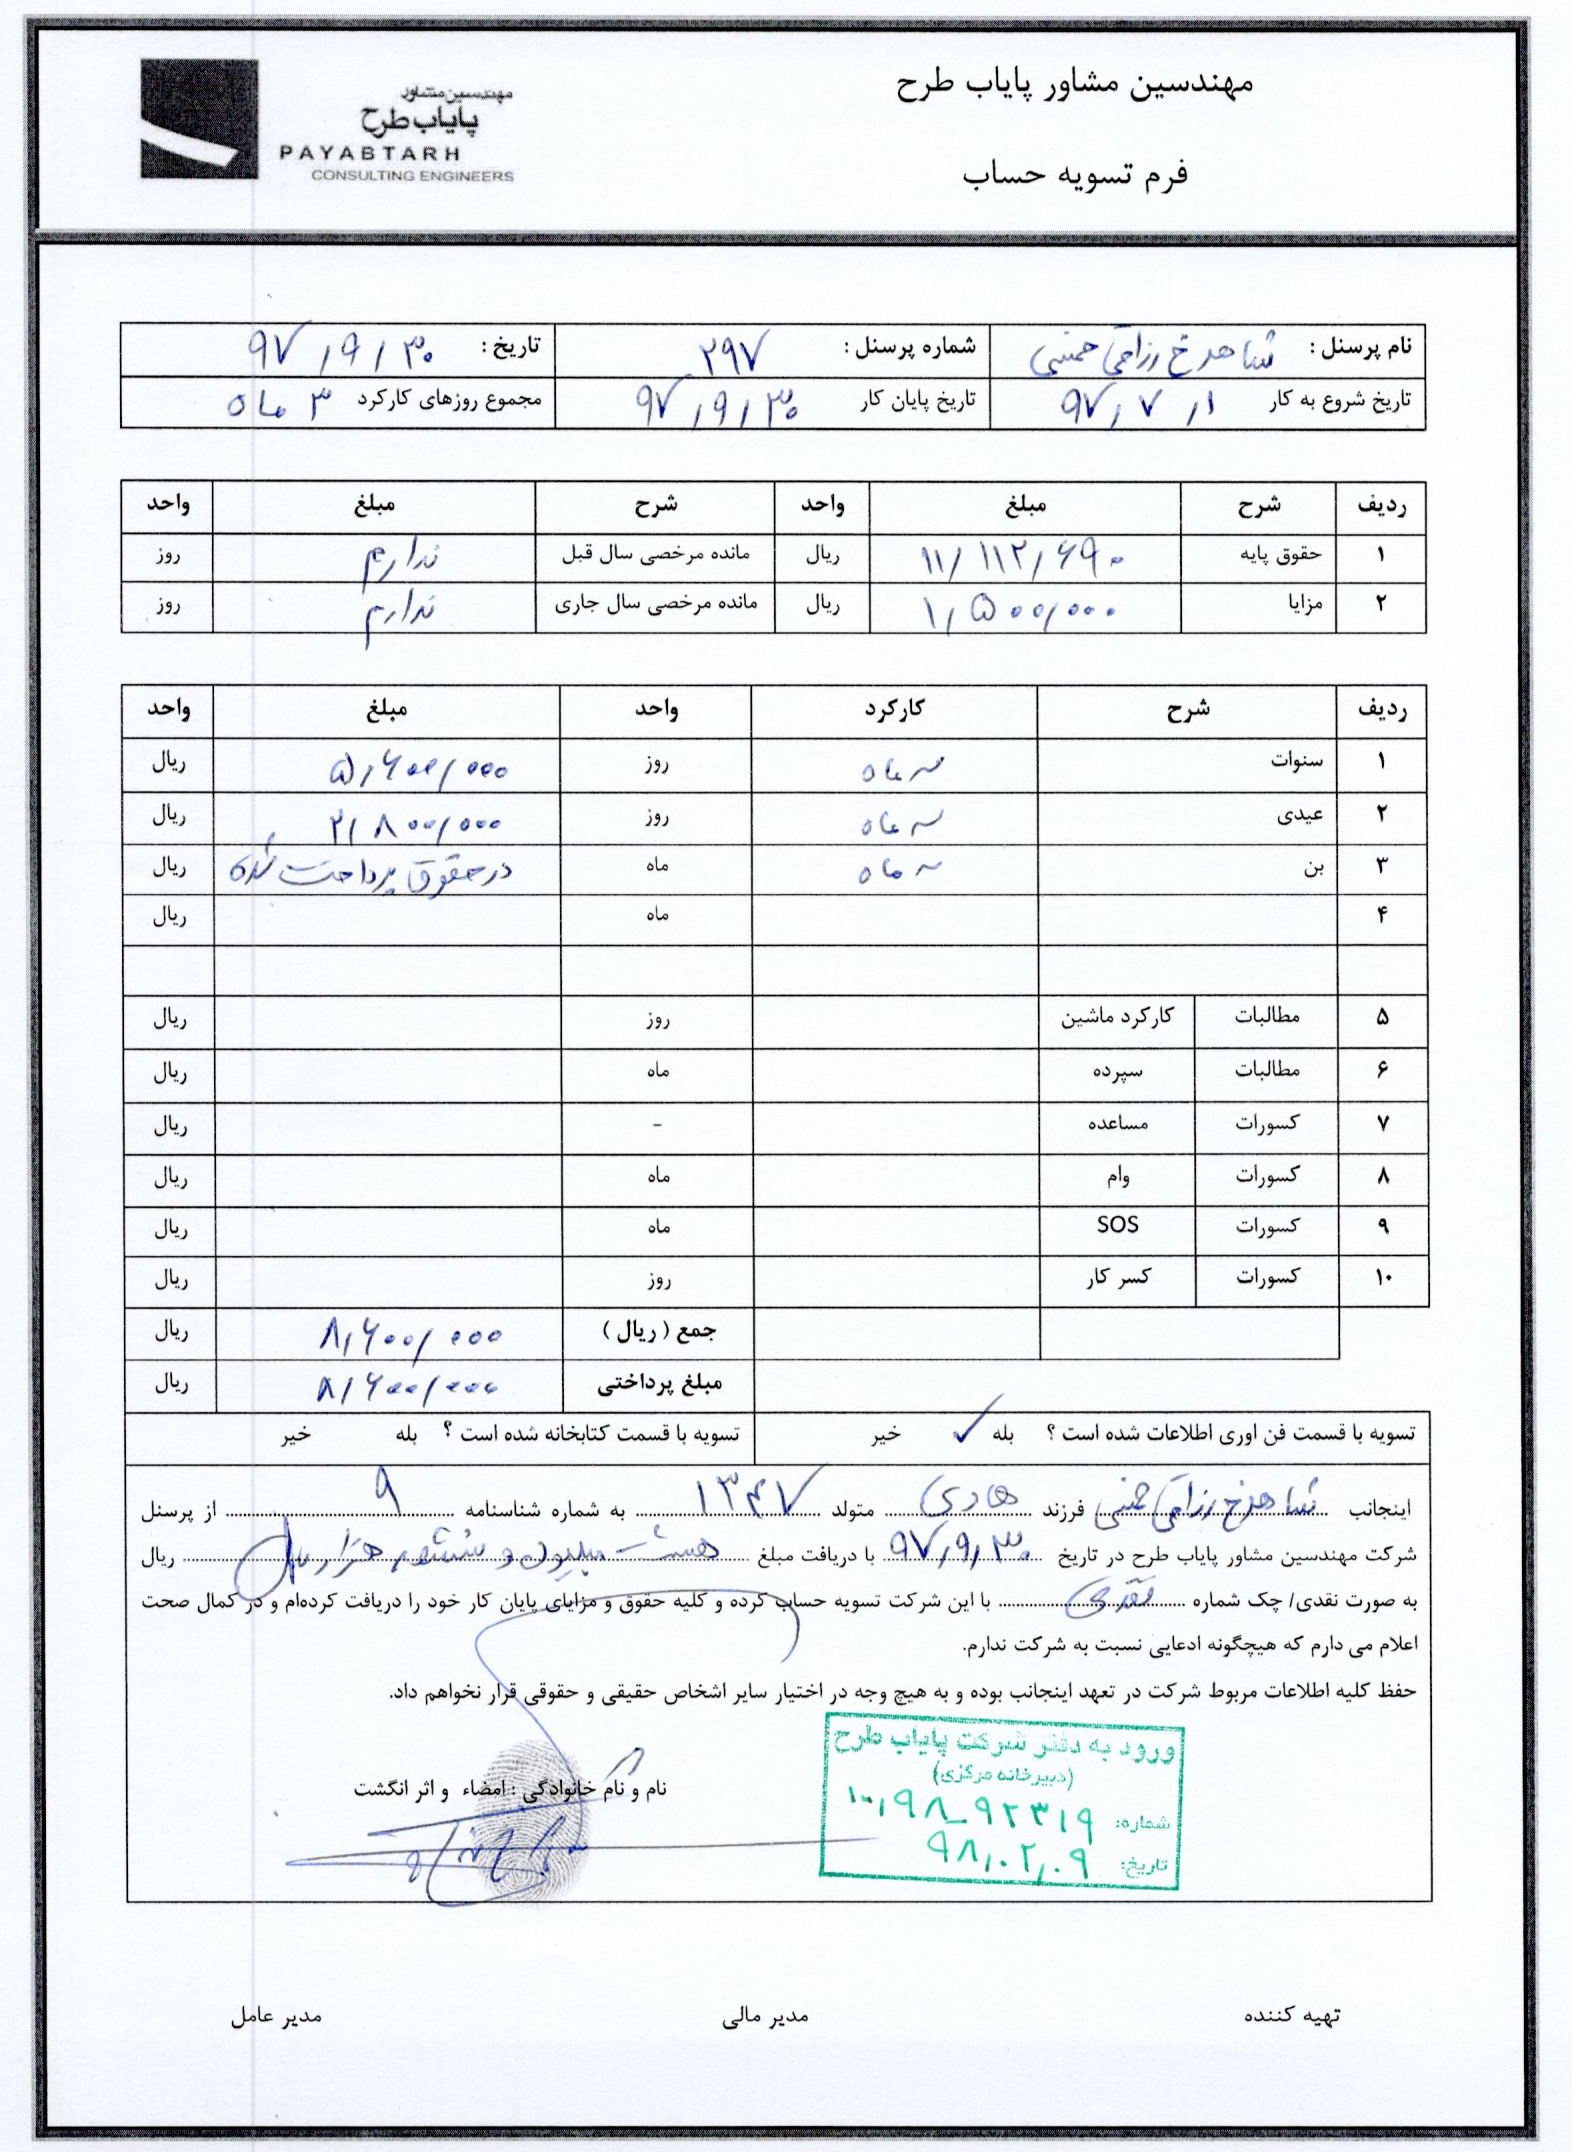 مهندسین مشاور پایاب طرح
فرم تسویه حساب
مهندسین مشاور
پایاب طرح
PAYABTARH
CONSULTING ENGINEERS
نام پرسنل : شاهرخ رزاقی خمسی شماره پرسنل : ۲۹۷ تاریخ : ۹۷/۹/۳۰
تاریخ شروع به کار ۹۷/۷/۱ تاریخ پایان کار ۹۷/۹/۳۰ مجموع روزهای کارکرد ۳ ماه
ردیف شرح مبلغ واحد شرح مبلغ واحد
۱ حقوق پایه ۱۱/۱۱۲/۶۹۰ ریال مانده مرخصی سال قبل ندارم روز
۲ مزایا ۱/۵۰۰/۰۰۰ ریال مانده مرخصی سال جاری ندارم روز
ردیف شرح کارکرد واحد مبلغ واحد
۱ سنوات سه ماه روز ۵/۶۰۰/۰۰۰ ریال
۲ عیدی سه ماه روز ۲/۸۰۰/۰۰۰ ریال
۳ بن سه ماه ماه در حقوق پرداخت شده ریال
۴ ماه ریال
۵ مطالبات کارکرد ماشین روز ریال
۶ مطالبات سپرده ماه ریال
۷ کسورات مساعده - ریال
۸ کسورات وام ماه ریال
۹ کسورات SOS ماه ریال
۱۰ کسورات کسر کار روز ریال
جمع ( ریال ) ۸/۶۰۰/۰۰۰ ریال
مبلغ پرداختی ۸/۶۰۰/۰۰۰ ریال
تسویه با قسمت فن اوری اطلاعات شده است ؟ بله ✓ خیر تسویه با قسمت کتابخانه شده است ؟ بله خیر
اینجانب شاهرخ رزاقی خمسی فرزند هادی متولد ۱۳۴۷ به شماره شناسنامه ۹ از پرسنل
شرکت مهندسین مشاور پایاب طرح در تاریخ ۹۷/۹/۳۰ با دریافت مبلغ هشت میلیون و ششصد هزار ریال ریال
به صورت نقدی/ چک شماره نقدی با این شرکت تسویه حساب کرده و کلیه حقوق و مزایای پایان کار خود را دریافت کرده‌ام و در کمال صحت
اعلام می دارم که هیچگونه ادعایی نسبت به شرکت ندارم.
حفظ کلیه اطلاعات مربوط شرکت در تعهد اینجانب بوده و به هیچ وجه در اختیار سایر اشخاص حقیقی و حقوقی قرار نخواهم داد.
ورود به دفتر شرکت پایاب طرح
(دبیرخانه مرکزی)
شماره: ۱۰/۹۸-۹۲۳۱۹
تاریخ: ۹۸/۰۲/۰۹
نام و نام خانوادگی : امضاء و اثر انگشت
تهیه کننده مدیر مالی مدیر عامل